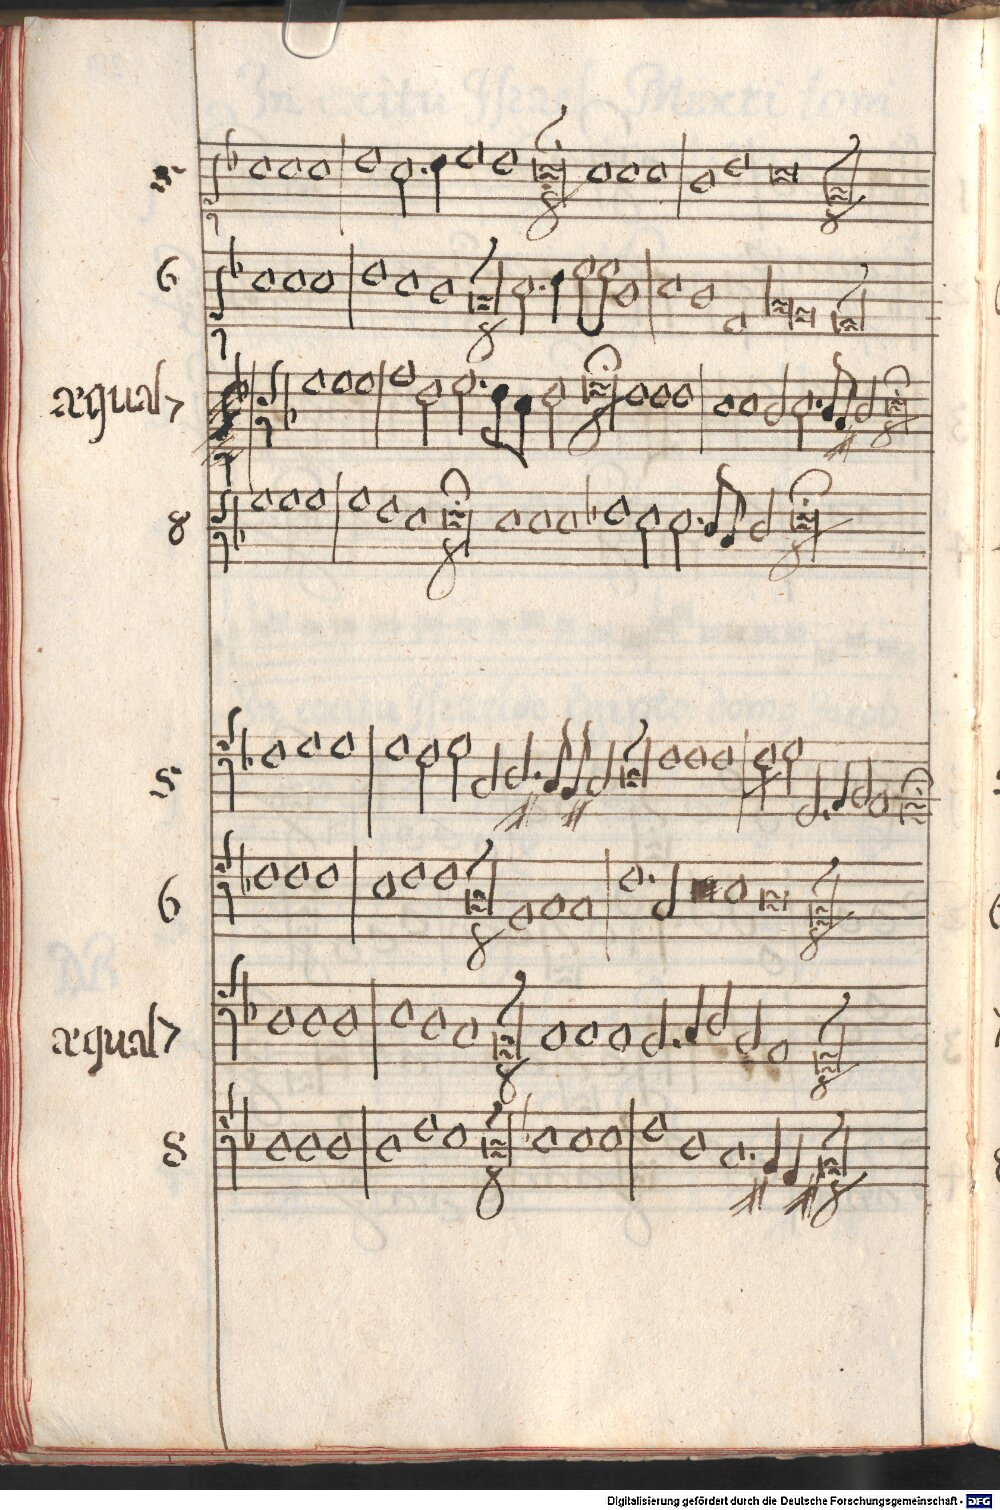 5
6
æqual 7
8
5
6
æqual 7
8
Digitalisierung gefördert durch die Deutsche Forschungsgemeinschaft - DFG